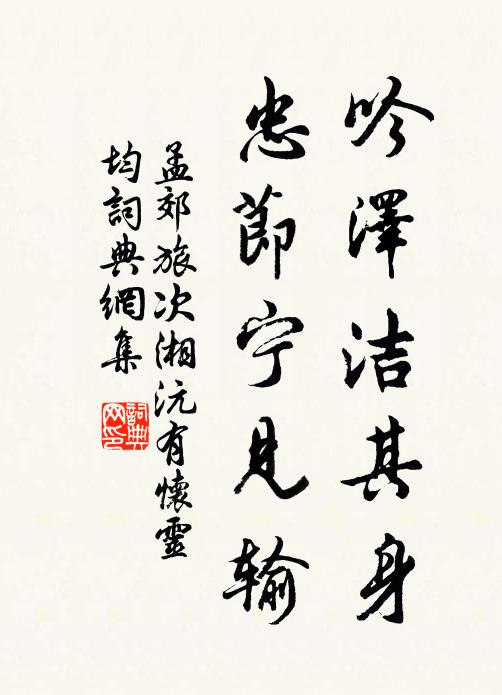 吟澤洁其身
忠節宁見输
孟郊旅次湘沅有懷靈
均詞典網集
詞典
网印